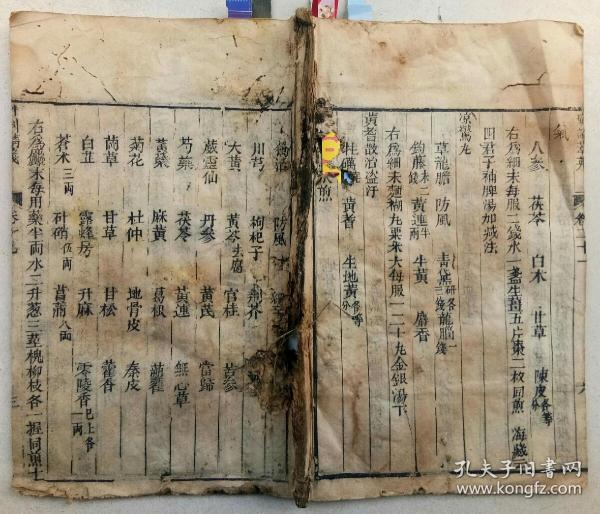 氣
人參 茯苓 白木 甘草 陳皮各等分
右爲細末每服二錢水一盞生薑五片棗二枚同煎 海藏云
四君子補脾湯加減法
凉驚丸
草龍膽 防風 青黛研各三錢 龍腦一錢
鉤藤末二 黃連 牛黃 麝香
右爲細末麵糊丸粟米大每服一二十丸金銀湯下
黃耆散治盜汗
牡礪煅 黃耆 生地黃各等分
煎
防風
川芎 枸杞子 荊芥
大黃 黃芩去腐 官桂 苦參
葳靈仙 丹參 黃芪 當歸
芍藥 茯苓 黃連 無心草
黃藥 麻黃 葛根
菊花 杜仲 地骨皮 秦皮
菵草 甘草 甘松 藿香
白芷 露蜂房 升麻 零陵香已上各一兩
蒼木三兩 朴硝伍兩 菖蒲八兩
右爲麄末每用藥半兩水三升葱三莖槐柳枝各一握同煎十
孔夫子旧书网
www.kongfz.com